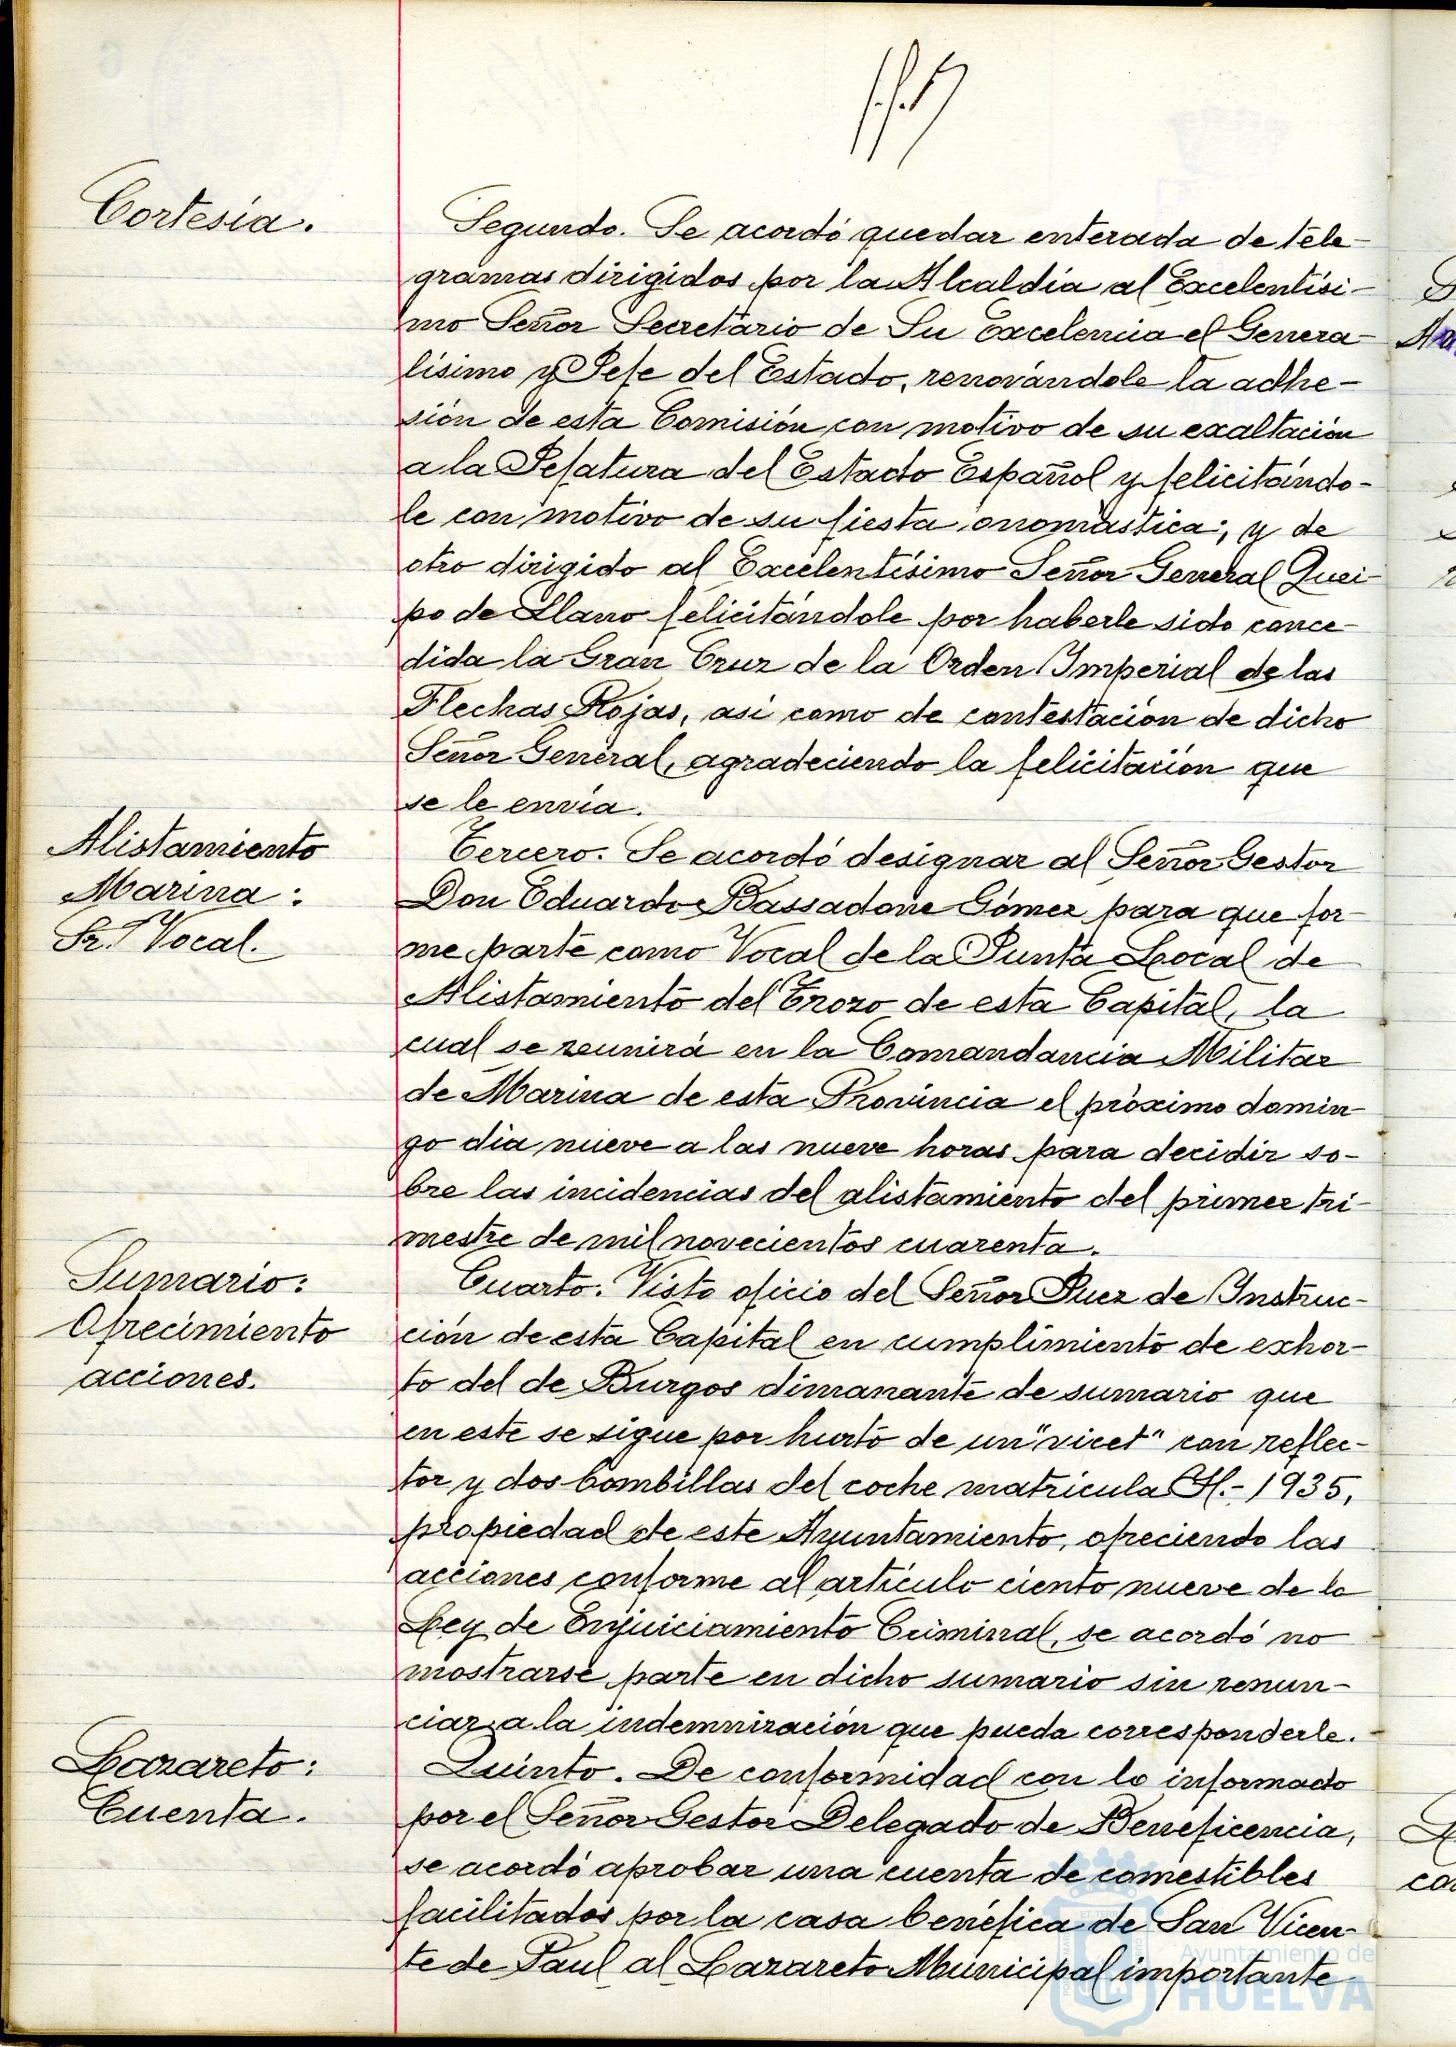 Cortesía.
Segundo. Se acordó quedar enterada de tele-
gramas dirigidos por la Alcaldía al Excelentísi-
mo Señor Secretario de Su Excelencia el Genera-
lísimo y Jefe del Estado, renovándole la adhe-
sión de esta Comisión con motivo de su exaltación
a la Jefatura del Estado Español y felicitándo-
le con motivo de su fiesta onomástica; y de
otro dirigido al Excelentísimo Señor General Quei-
po de Llano felicitándole por haberle sido conce-
dida la Gran Cruz de la Orden Imperial de las
Flechas Rojas, así como de contestación de dicho
Señor General, agradeciendo la felicitación que
se le envía.
Alistamiento
Marina:
Sr. Vocal.
Tercero. Se acordó designar al Señor Gestor
Don Eduardo Bassadone Gómez para que for-
me parte como Vocal de la Junta Local de
Alistamiento del Trozo de esta Capital, la
cual se reunirá en la Comandancia Militar
de Marina de esta Provincia el próximo domin-
go dia nueve a las nueve horas para decidir so-
bre las incidencias del alistamiento del primer tri-
mestre de mil novecientos cuarenta.
Sumario:
Ofrecimiento
acciones.
Cuarto. Visto oficio del Señor Juez de Instruc-
ción de esta Capital en cumplimiento de exhor-
to del de Burgos dimanante de sumario que
en este se sigue por hurto de un "vicet" con reflec-
tor y dos bombillas del coche matricula H.-1935,
propiedad de este Ayuntamiento, ofreciendo las
acciones conforme al artículo ciento nueve de la
Ley de Enjuiciamiento Criminal, se acordó no
mostrarse parte en dicho sumario sin renun-
ciar a la indemnización que pueda corresponderle.
Lazareto:
Cuenta.
Quinto. De conformidad con lo informado
por el Señor Gestor Delegado de Beneficencia,
se acordó aprobar una cuenta de comestibles
facilitados por la casa benéfica de San Vicen-
te de Paul al Lazareto Municipal importante
Ayuntamiento de
HUELVA